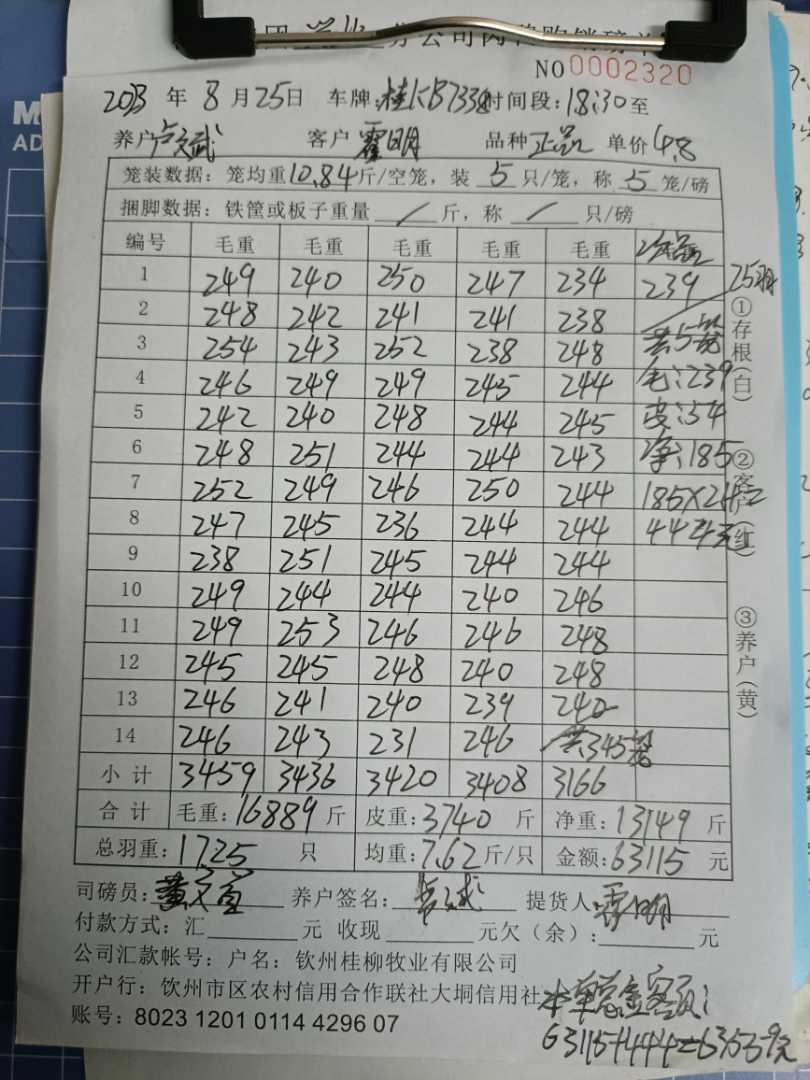 分公司肉 购销磅单
NO 0002320
2023 年 8 月 25 日 车牌:桂KB7338 时间段:18:30至
养户 卢文武 客户 霍明 品种 正品 单价 4.8
笼装数据:笼均重10.84斤/空笼,装 5 只/笼,称 5 笼/磅
捆脚数据:铁筐或板子重量 / 斤,称 / 只/磅
编号 毛重 毛重 毛重 毛重 毛重 次品
1 249 240 250 247 234 239 25羽
2 248 242 241 241 238
3 254 243 252 238 248 共5笼
4 246 249 249 245 244 毛:239
5 242 240 248 244 245 皮:54
6 248 251 244 244 243 净:185
7 252 249 246 250 244 185×2.4=
8 247 245 236 244 244 444元
9 238 251 245 244 244
10 249 244 244 240 246
11 249 253 246 246 248
12 245 245 248 240 248
13 246 241 240 239 240
14 246 243 231 246 共345笼
小计 3459 3436 3420 3408 3166
合计 毛重:16889 斤 皮重:3740 斤 净重:13149 斤
总羽重:1725 只 均重:7.62斤/只 金额:63115 元
司磅员: 养户签名: 文武 提货人:霍明
付款方式:汇 元 收现 元欠(余): 元
公司汇款帐号:户名:钦州桂柳牧业有限公司
开户行:钦州市区农村信用合作联社大垌信用社
账号:8023 1201 0114 4296 07
本单总金额:
63115+444=63559元
①存根(白)
②客户(红)
③养户(黄)